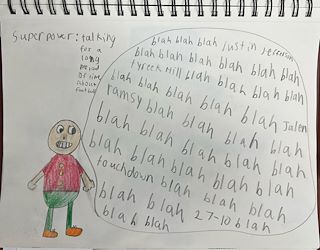 Superpower: talking
for a
long
period
of time
about
football
blah blah blah justin jefferson
blah blah blah blah blah blah
tyreek Hill blah blah blah blah
blah blah blah blah blah blah
ramsy blah blah blah blah Jalen
blah blah blah blah blah
blah blah blah blah blah
touchdown blah blah blah
blah blah blah blah blah
blah blah 27-10 blah